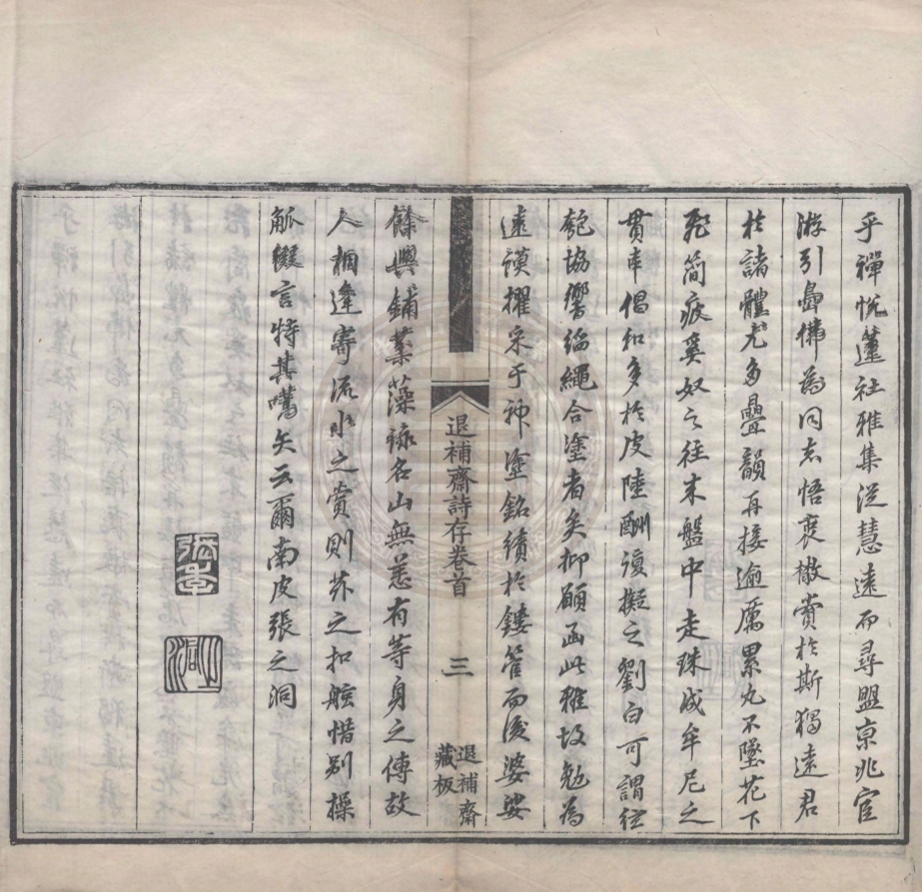 乎禪悅蓮社雅集從慧遠而尋盟京兆宦
游引為同志悟賞於斯獨遠君
於諸體尤多疊韻再接逾厲累丸不墜花下
飛筒疲奚奴之往來盤中走珠成牟尼之
貫串倡和多於皮陸酬復擬之劉白可謂笙
匏協響繩合塗者矣抑願函此雅故勉為
遠謨擢采于神塗銘績於鏤管而後婆娑
餘興鋪藻詠名山無恙有等身之傳故
人相逢寄流水之賞則之扣舷惜别操
觚綴言特其嚆矢云爾南皮張之洞
退補齋詩存卷首
三
退補齋
藏板